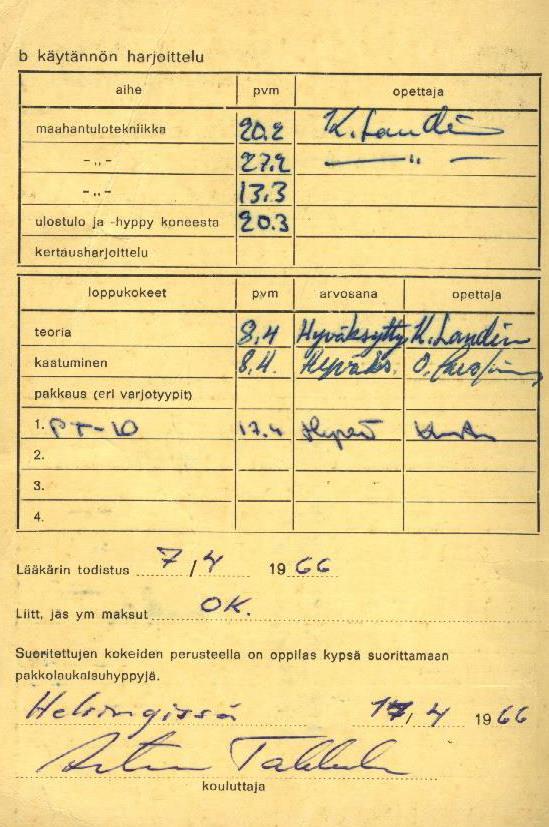 b käytännön harjoittelu
aihe pvm opettaja
maahantulotekniikka 20.2 K. Landén
– „ – 27.2 — „ —
– „ – 13.3
ulostulo ja -hyppy koneesta 20.3
kertausharjoittelu
loppukokeet pvm arvosana opettaja
teoria 8.4 Hyväksytty K. Landén
kastuminen 8.4. Hyväks. O.
pakkaus (eri varjotyypit)
1. PT-10 17.4
2.
3.
4.
Lääkärin todistus 7/4 1966
Liitt, jäs ym maksut OK.
Suoritettujen kokeiden perusteella on oppilas kypsä suorittamaan
pakkolaukaisuhyppyjä.
Helsingissä 17/4 1966
kouluttaja